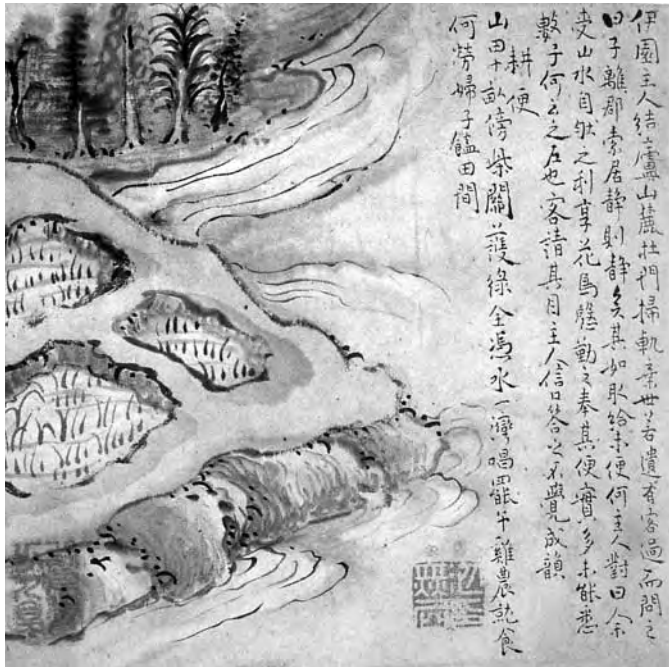 伊園主人結廬山麓杜門掃軌棄世若遺有客過而問之
曰子離郡索居静則静矣其如取給未便何主人對曰余
受山水自然之利享花鳥慇勤之奉其便實多未能悉
數子何云之左也客請其目主人信口答之不覺成韻
耕便
山田十畝傍柴關護緑全憑水一灣唱罷午雞農就食
何勞婦子饁田間